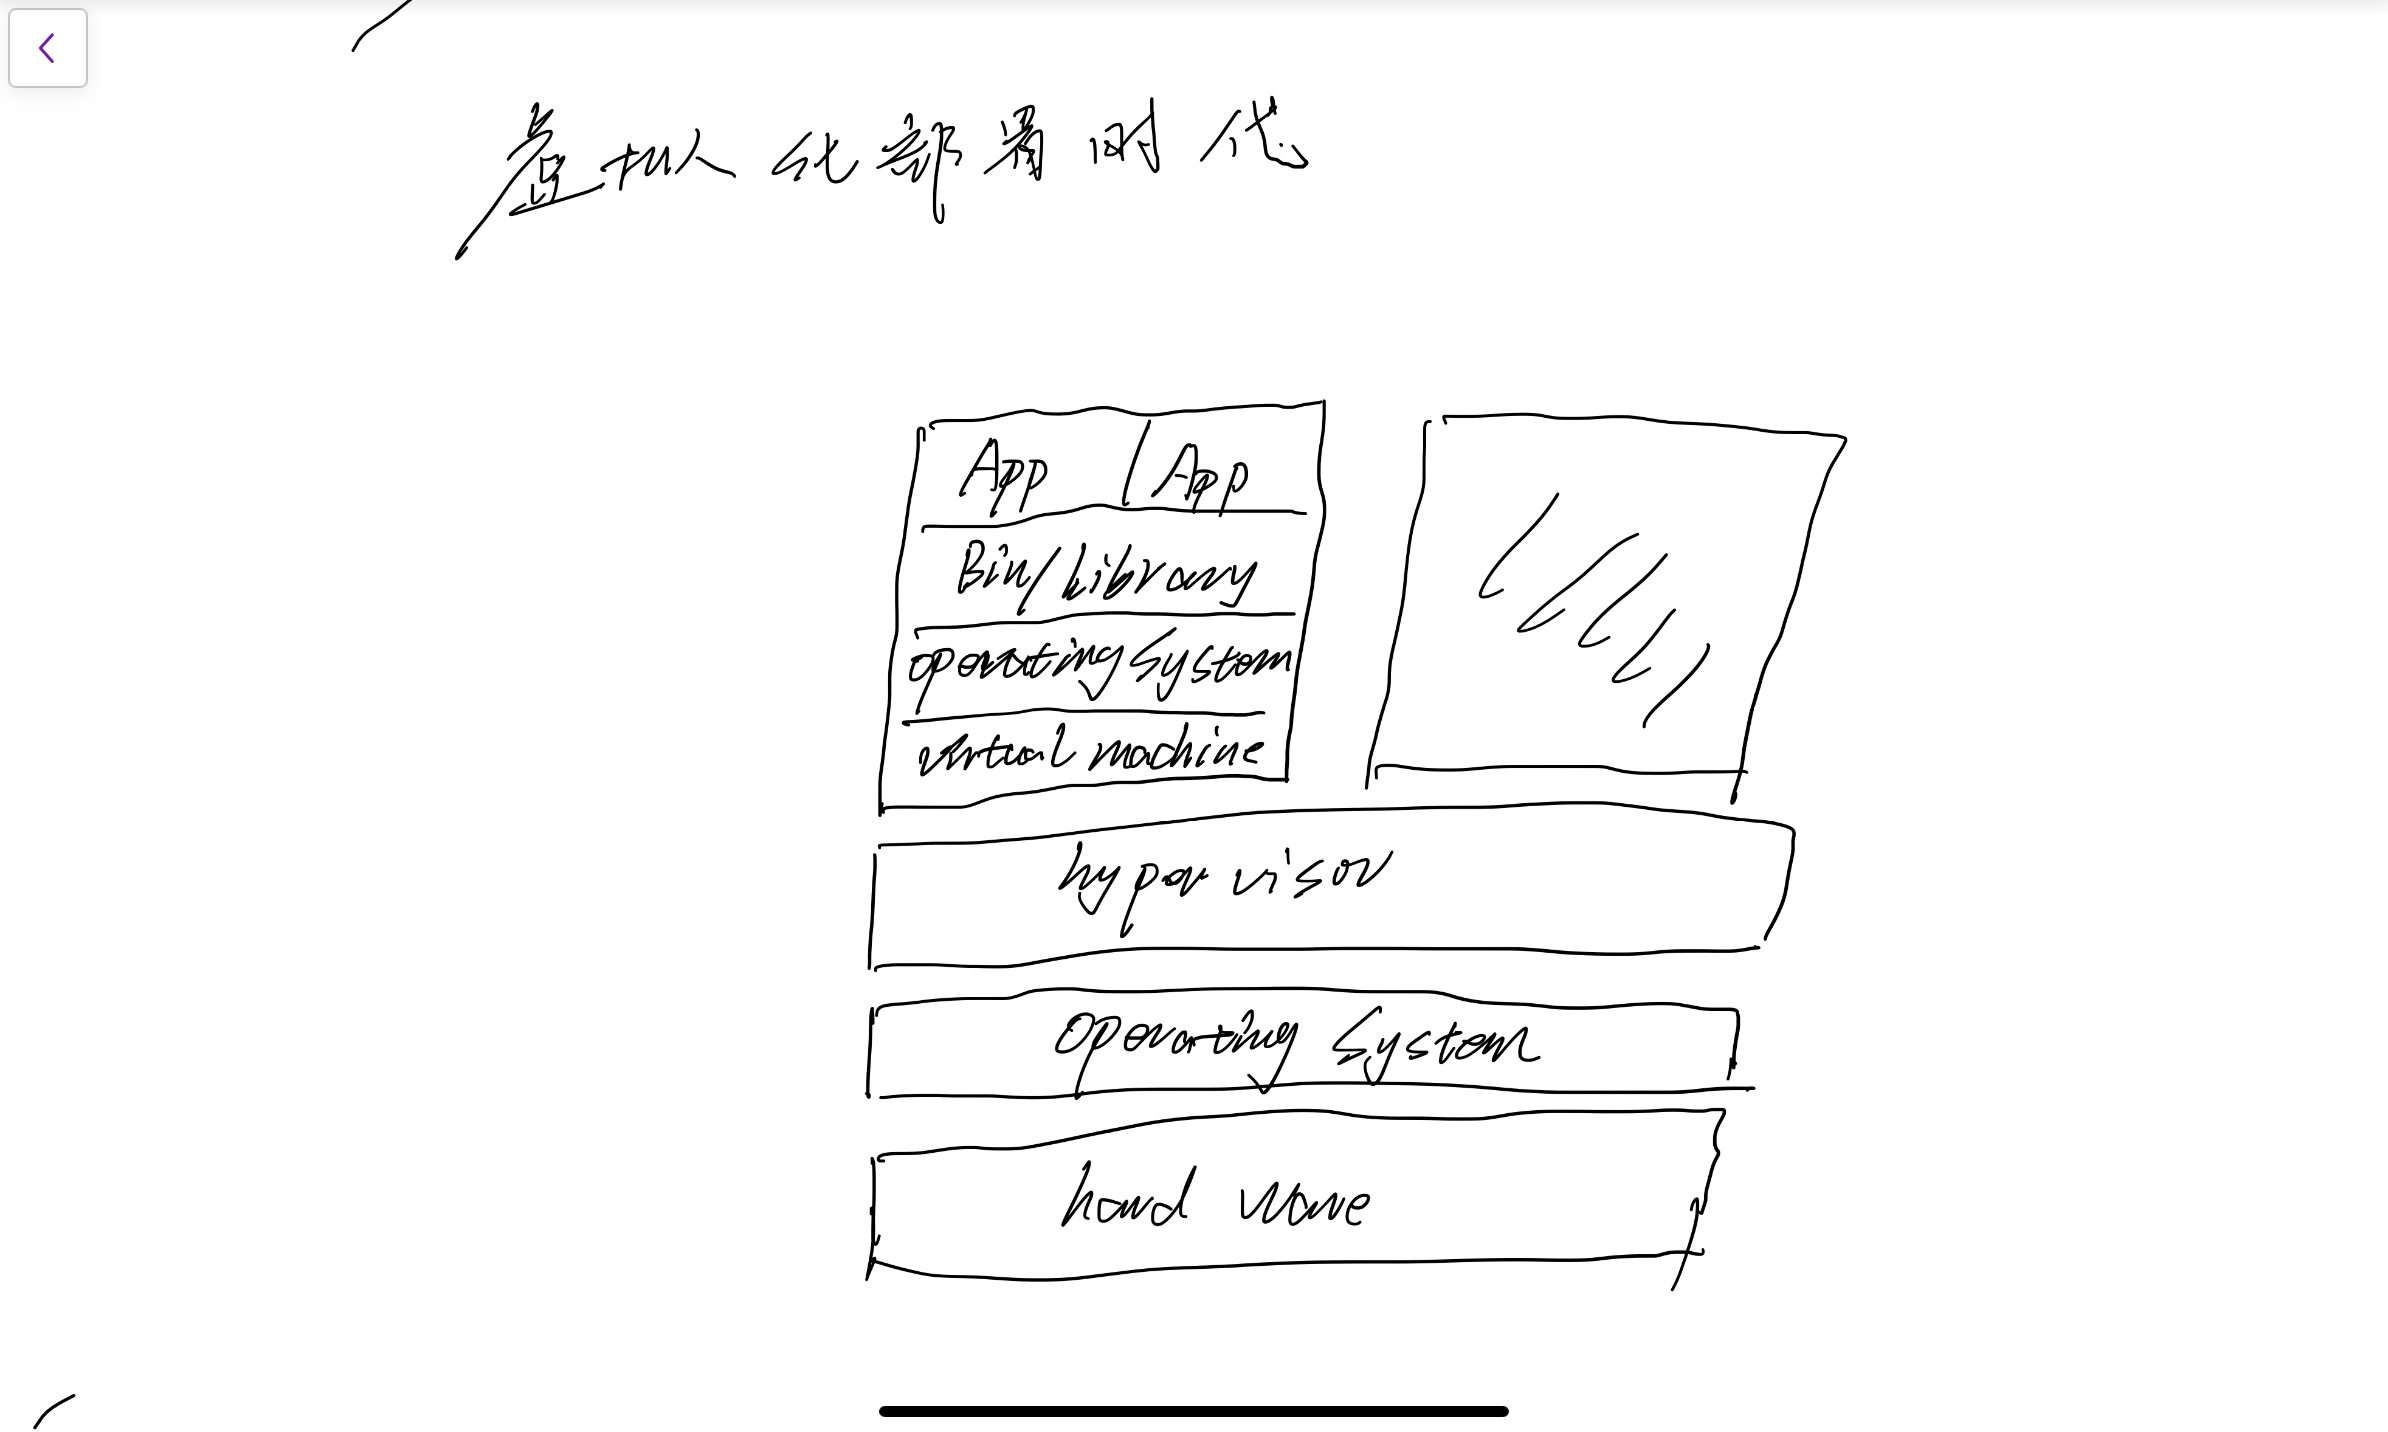 虚拟化部署时代
App App
Bin/Library
operating System
virtual machine
hypervisor
operating System
hard ware